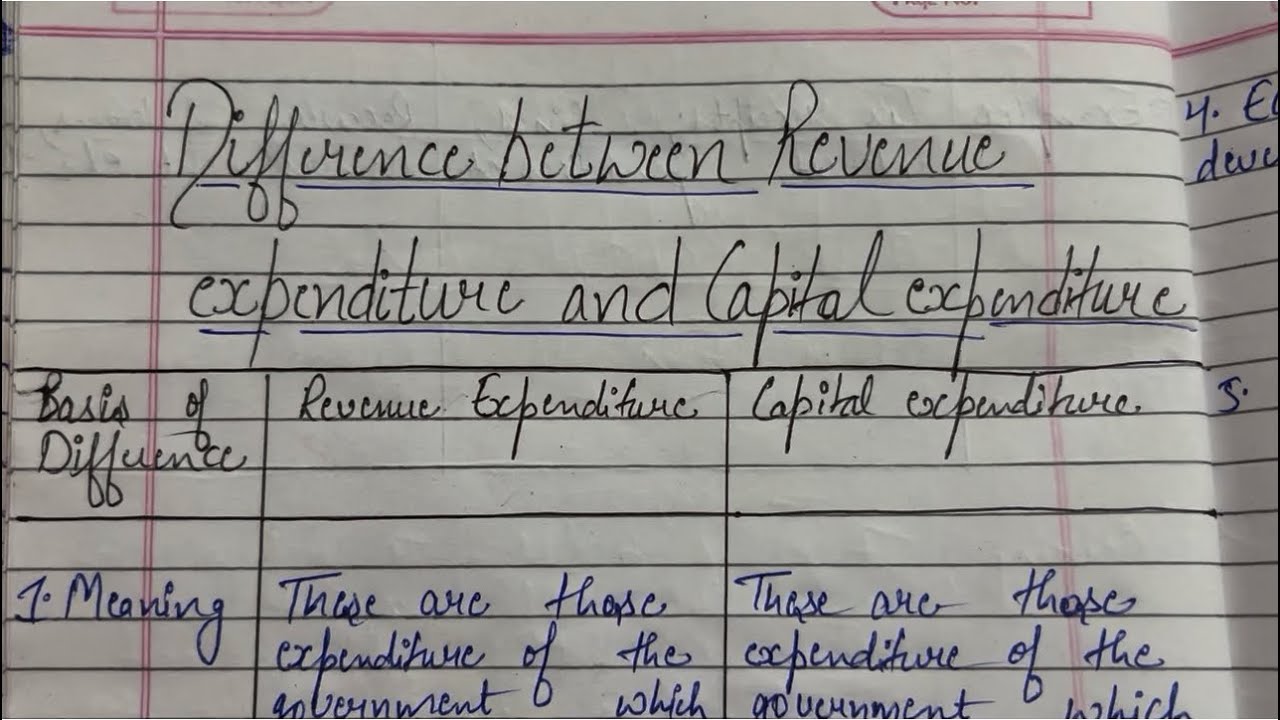 Difference between Revenue
expenditure and Capital expenditure
Basis of Difference | Revenue Expenditure | Capital expenditure.
1. Meaning | These are those | These are those
expenditure of the | expenditure of the
government which | government which
4.
5.